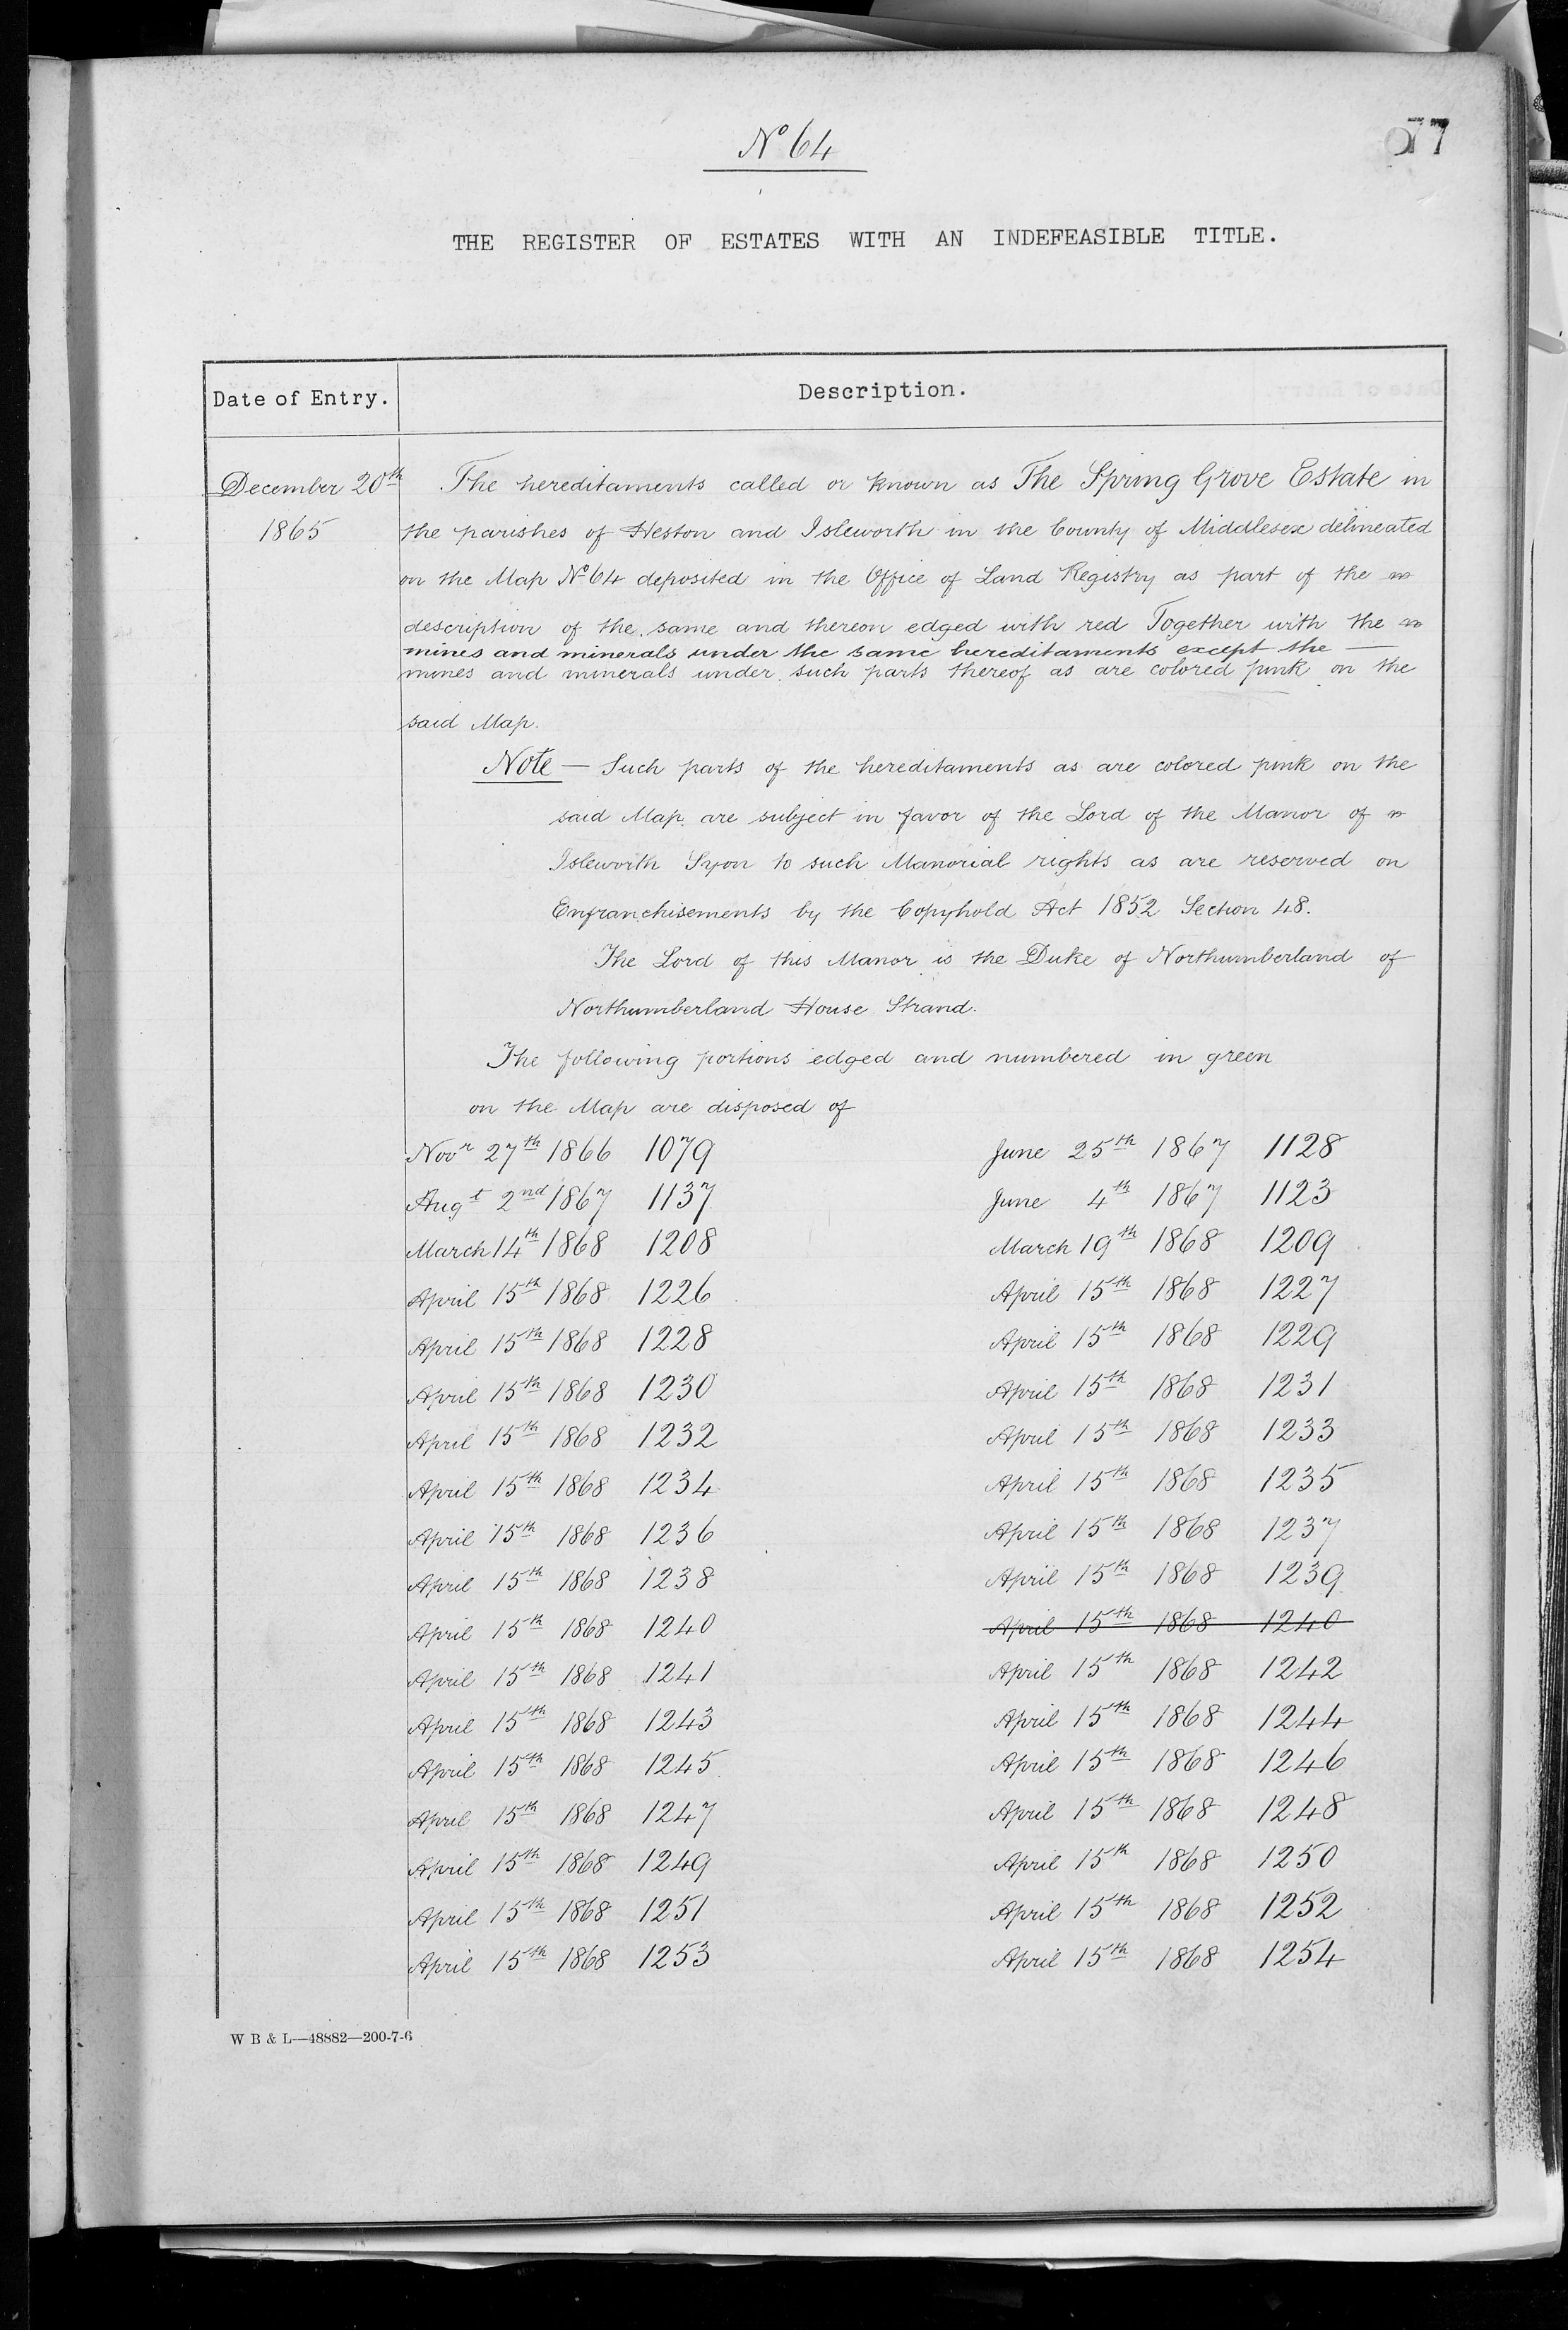 No 64
77
THE REGISTER OF ESTATES WITH AN INDEFEASIBLE TITLE.
Date of Entry. Description.
December 20th The hereditaments called or known as The Spring Grove Estate in
1865 the parishes of Heston and Isleworth in the County of Middlesex delineated
on the Map No 64 deposited in the Office of Land Registry as part of the
description of the same and thereon edged with red Together with the
mines and minerals under the same hereditaments except the —
mines and minerals under such parts thereof as are colored pink on the
said Map.
Note — Such parts of the hereditaments as are colored pink on the
said Map are subject in favor of the Lord of the Manor of
Isleworth Syon to such Manorial rights as are reserved on
Enfranchisements by the Copyhold Act 1852 Section 48.
The Lord of this Manor is the Duke of Northumberland of
Northumberland House Strand.
The following portions edged and numbered in green
on the Map are disposed of
Novr 27th 1866 1079 June 25th 1867 1128
Augt 2nd 1867 1137 June 4th 1867 1123
March 14th 1868 1208 March 19th 1868 1209
April 15th 1868 1226 April 15th 1868 1227
April 15th 1868 1228 April 15th 1868 1229
April 15th 1868 1230 April 15th 1868 1231
April 15th 1868 1232 April 15th 1868 1233
April 15th 1868 1234 April 15th 1868 1235
April 15th 1868 1236 April 15th 1868 1237
April 15th 1868 1238 April 15th 1868 1239
April 15th 1868 1240 April 15th 1868 1240
April 15th 1868 1241 April 15th 1868 1242
April 15th 1868 1243 April 15th 1868 1244
April 15th 1868 1245 April 15th 1868 1246
April 15th 1868 1247 April 15th 1868 1248
April 15th 1868 1249 April 15th 1868 1250
April 15th 1868 1251 April 15th 1868 1252
April 15th 1868 1253 April 15th 1868 1254
W B & L—48882—200-7-6